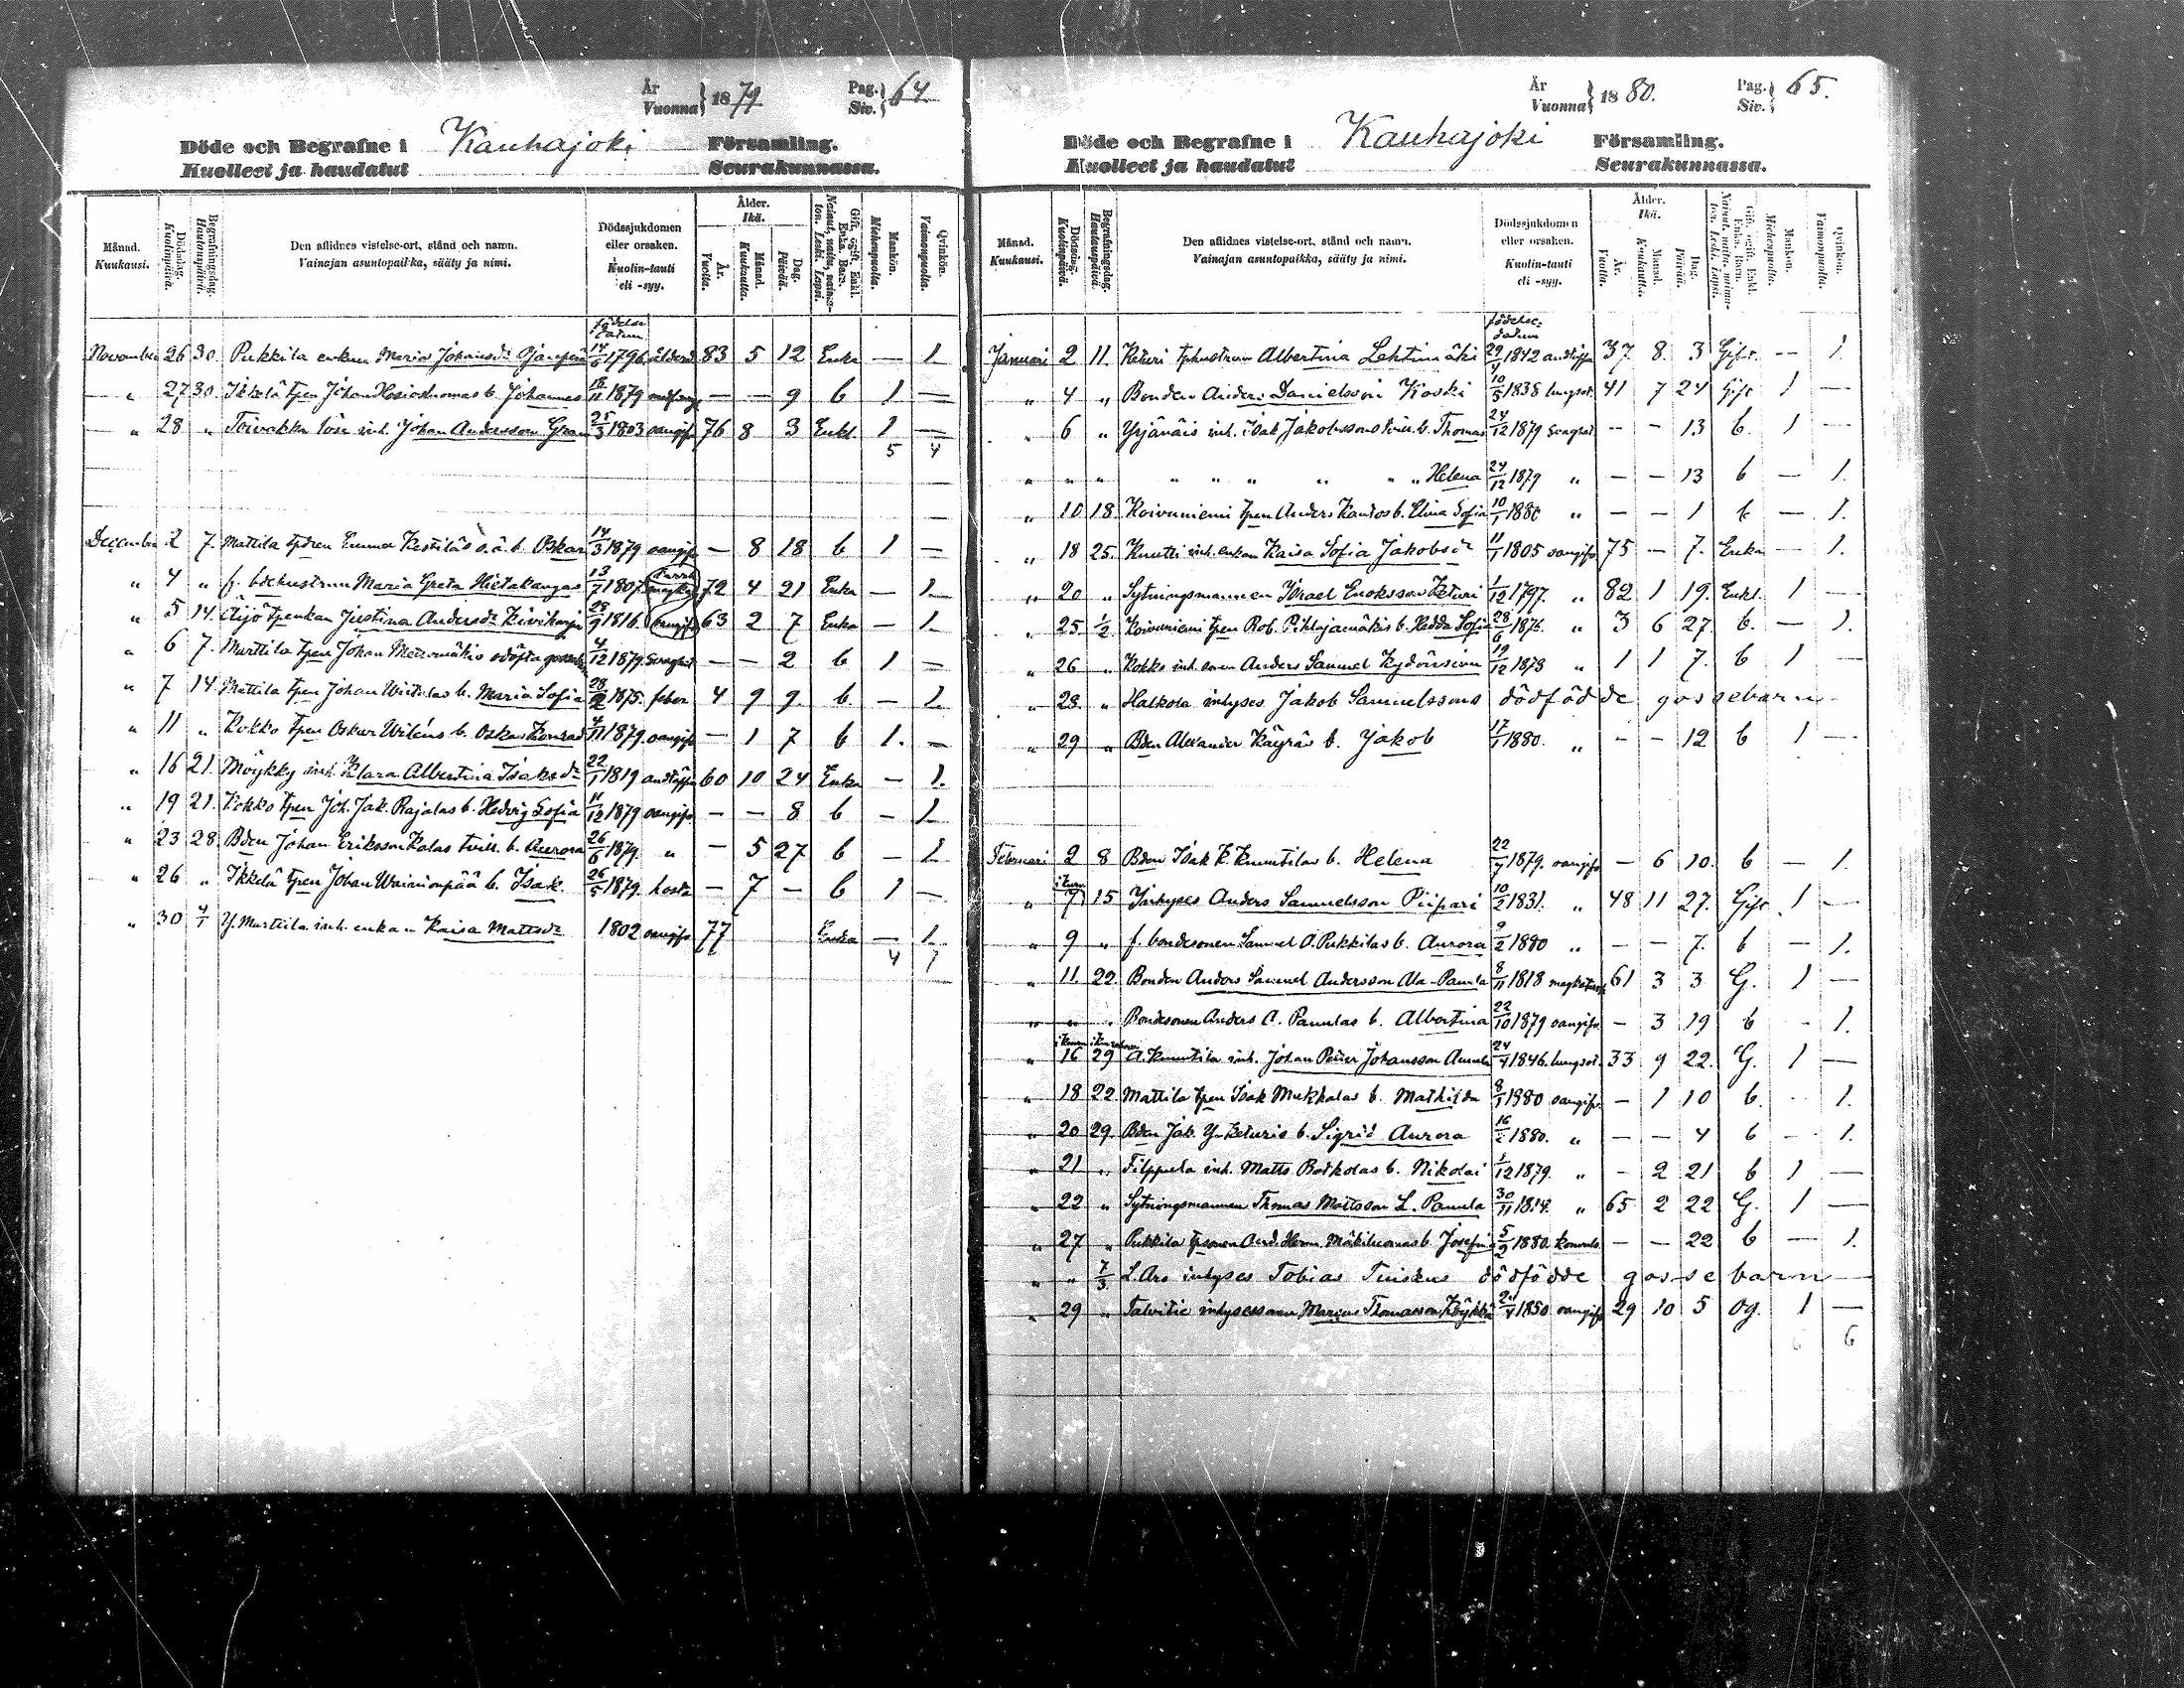 År
Vuonna } 1879. Pag.
Siv. } 64.
Döde och Begrafne i Kauhajoki Församling.
Kuolleet ja haudatut Seurakunnassa.
Månad.
Kuukausi.
Dödsdag.
Kuolinpäivä.
Begrafningsdag.
Hautauspäivä.
Den aflidnes vistelse-ort, stånd och namn.
Vainajan asuntopaikka, sääty ja nimi.
Dödssjukdomen
eller orsaken.
Kuolin-tauti
eli -syy.
Ålder.
Ikä.
År.
Vuotta.
Månad.
Kuukautta.
Dag.
Päivää.
Gift, ogift, Enkl.
Enka, Barn.
Nainut, naitu, naima-
ton. Leski. Lapsi.
Mankön.
Miehenpuolta.
Qvinkön.
Vaimonpuolta.
födelse
datum
November 26 30. Pukkila enkan Maria Johansdr 14/6 1796. ålderd 83 5 12 Enka — 1.
" 27 30. Ikkelä tpen Johan Hosioluomas b. Johannes 18/11 1879 — — 9 b 1 —
" 28 " Toivakka lösa inh. Johan Andersson Gran 25/3 1803 oangifv 76 8 3 Enkl. 1 —
5 4
December 2 7. Mattila tpdren Emma Kestiläs o.ä. b. Oskar 14/3 1879 oangifv — 8 18 b 1 —
" 4 " f. bdehustrun Maria Greta Hietakangas 13/7 1807. 72 4 21 Enka — 1.
" 5 14. Äijö tpenkan Justina Andersdr Kiviharju 28/9 1816. oangifv 63 2 7 Enka — 1.
" 6 7. Marttila tpen Johan Metsomäkis odöpta gossebarn 4/12 1879. — — 2 b 1 —
" 7 14. Mattila tpen Johan b. Maria Sofia 1875. feber 4 9 9. b. — 1.
" 11 " Kokko tpen Oskar Wiléns b. Oskar Konrad 4/11 1879. oangifv — 1 7 b 1. —
" 16 21. Möykky inh. Klara Albertina Isaksdr 22/1 1819 andtäppa 60 10 24 Enka — 1.
" 19 21. Kokko tpen Joh. Jak. Rajalas b. Hedvig Sofia 11/12 1879 oangifv. — — 8 b — 1
" 23 28. Bden Johan Eriksson Kalas tvill. b. Aurora 26/6 1879. " — 5 27 b — 1
" 26 " Ikkelä tpen Johan Wäinionpää b. Isak. 26/5 1879. hosta — 7 — b 1 —
" 30 4/1 Y. Marttila inh. enkan Kaisa Mattsdr 1802 oangifv 77 Enka — 1.
4 7
År
Vuonna } 1880. Pag.
Siv. } 65.
Döde och Begrafne i Kauhajoki Församling.
Kuolleet ja haudatut Seurakunnassa.
Månad.
Kuukausi.
Dödsdag.
Kuolinpäivä.
Begrafningsdag.
Hautauspäivä.
Den aflidnes vistelse-ort, stånd och namn.
Vainajan asuntopaikka, sääty ja nimi.
Dödssjukdomen
eller orsaken.
Kuolin-tauti
eli -syy.
Ålder.
Ikä.
År.
Vuotta.
Månad.
Kuukautta.
Dag.
Päivää.
Gift, ogift, Enkl.
Enka, Barn.
Nainut, naitu, naima-
ton. Leski. Lapsi.
Mankön.
Miehenpuolta.
Qvinkön.
Vaimonpuolta.
födelse-
datum
Januari 2 11. Keturi tphustrun Albertina Lehtimäki 29/4 1842 andtäppa 37. 8. 3 Gift. — 1.
" 4 " Bonden Anders Danielsson Koski 10/5 1838 lungsot. 41 7 24 Gift 1 —
" 6 " Yrjänäis inh. Isak Jakobssons tvill. b. Thomas 24/12 1879 — — 13 b. 1 —
" " " " " " " " " Helena 24/12 1879 " — — 13 b — 1.
" 10 18. Koivuniemi tpen Anders Kantos b. Elina Sofia 10/1 1880 " — — 1 b — 1.
" 18 25. Knutti inh. enkan Kaisa Sofia Jakobsdr 11/1 1805 oangifv 75 — 7. Enka — 1.
" 20 " Sytningsmannen Israel Enoksson Keturi 1/12 1797. " 82 1 19. Enkl. 1 —
" 25. 1/2 Koivuniemi tpen Rob. Pihlajamäkis b. Hedda Sofia 28/6 1876. " 3 6 27. b. — 1.
" 26 " Kokko inh. Anders Samuel 19/12 1878 " 1 1 7. b 1 —
" 28. " Halkola inhyses Jakob Samuelssons dödfödde gossebarn
" 29 " Bden Alexander Käyräs b. Jakob 17/1 1880. " — — 12 b 1 —
Februari 2 8 Bden Isak K. Knuutilas b. Helena 22/7 1879. oangifv — 6 10. b — 1.
" 7 15 Inhyses Anders Samuelsson Piipari 10/2 1831. " 48 11 27. Gift 1 —
" 9 " f. bondesonen Samuel O. Pukkilas b. Aurora 9/2 1880 " — — 7. b — 1.
" 11. 22. Bonden Anders Samuel Andersson Ala-Panula 8/11 1818 61 3 3 G. 1 —
" " " Bondesonen Anders A. Panulas b. Albertina 22/10 1879 oangifv. — 3 19 b - 1.
" 16 29 A. Knuutila inh. Johan Petter Johansson Annala 24/4 1846. lungsot. 33 9 22. G. 1 —
" 18 22 Mattila tpen Isak Mukkalas b. Mathilda 8/1 1880 oangifv. — 1 10 b. - 1.
" 20 29. Bden Jak. Y-Keturis b. Sigrid Aurora 16/2 1880. " — — 4 b — 1.
" 21 " Filppula inh. Matts b. Nikolai 1/12 1879. " — 2 21 b 1 —
" 22 " Sytningsmannen Thomas Mattsson L. Panula 30/11 1814. " 65 2 22 G. 1 —
" 27 " Pukkila tpsonen And. Herm. Mäkiluomas b. Josefina 5/2 1880. konvuls. — — 22 b — 1.
" " 7/3. L. Aro inhyses Tobias Tuiskus dödfödde gossebarn
" 29 " Talvitie inhysessonen Marius Thomasson 24/4 1850 oangifv 29 10 5 og. 1 —
6 6